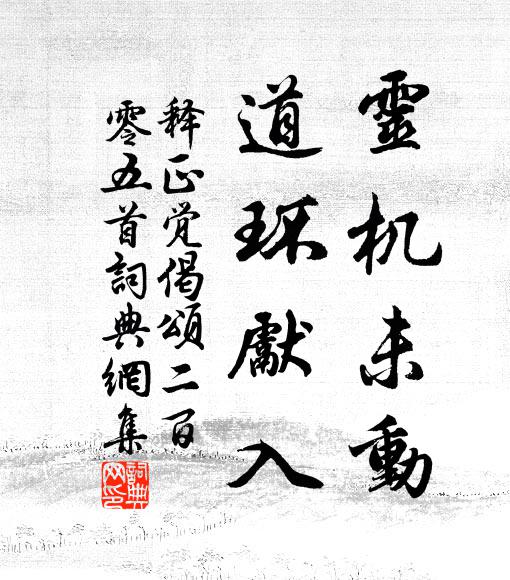 靈机未動
道環獻入
释正觉偈頌二百
零五首詞典網集
詞典网印